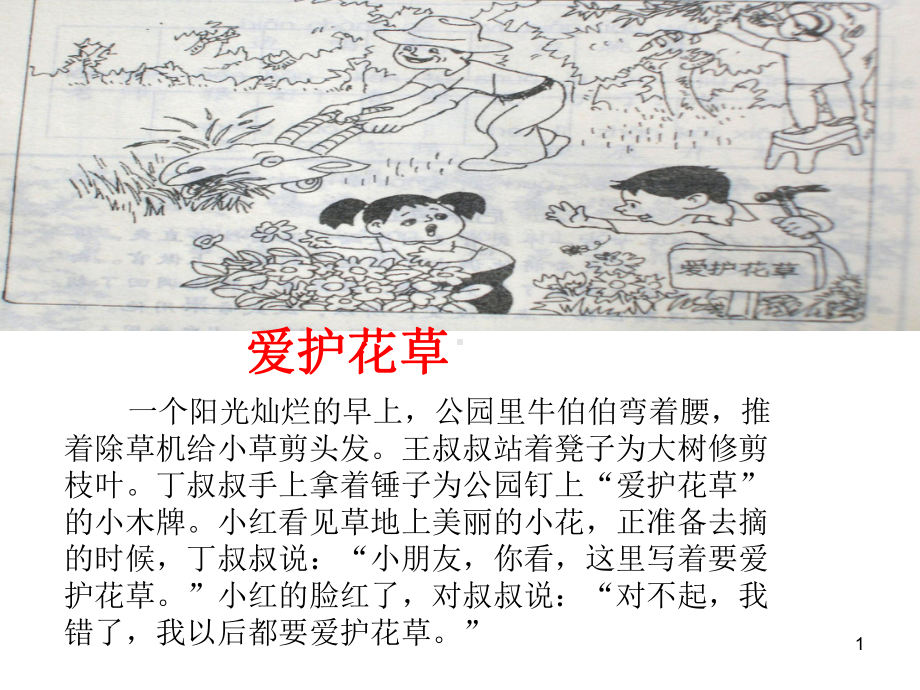 爱护花草
爱护花草
一个阳光灿烂的早上，公园里牛伯伯弯着腰，推
着除草机给小草剪头发。王叔叔站着凳子为大树修剪
枝叶。丁叔叔手上拿着锤子为公园钉上“爱护花草”
的小木牌。小红看见草地上美丽的小花，正准备去摘
的时候，丁叔叔说：“小朋友，你看，这里写着要爱
护花草。”小红的脸红了，对叔叔说：“对不起，我
错了，我以后都要爱护花草。”
1